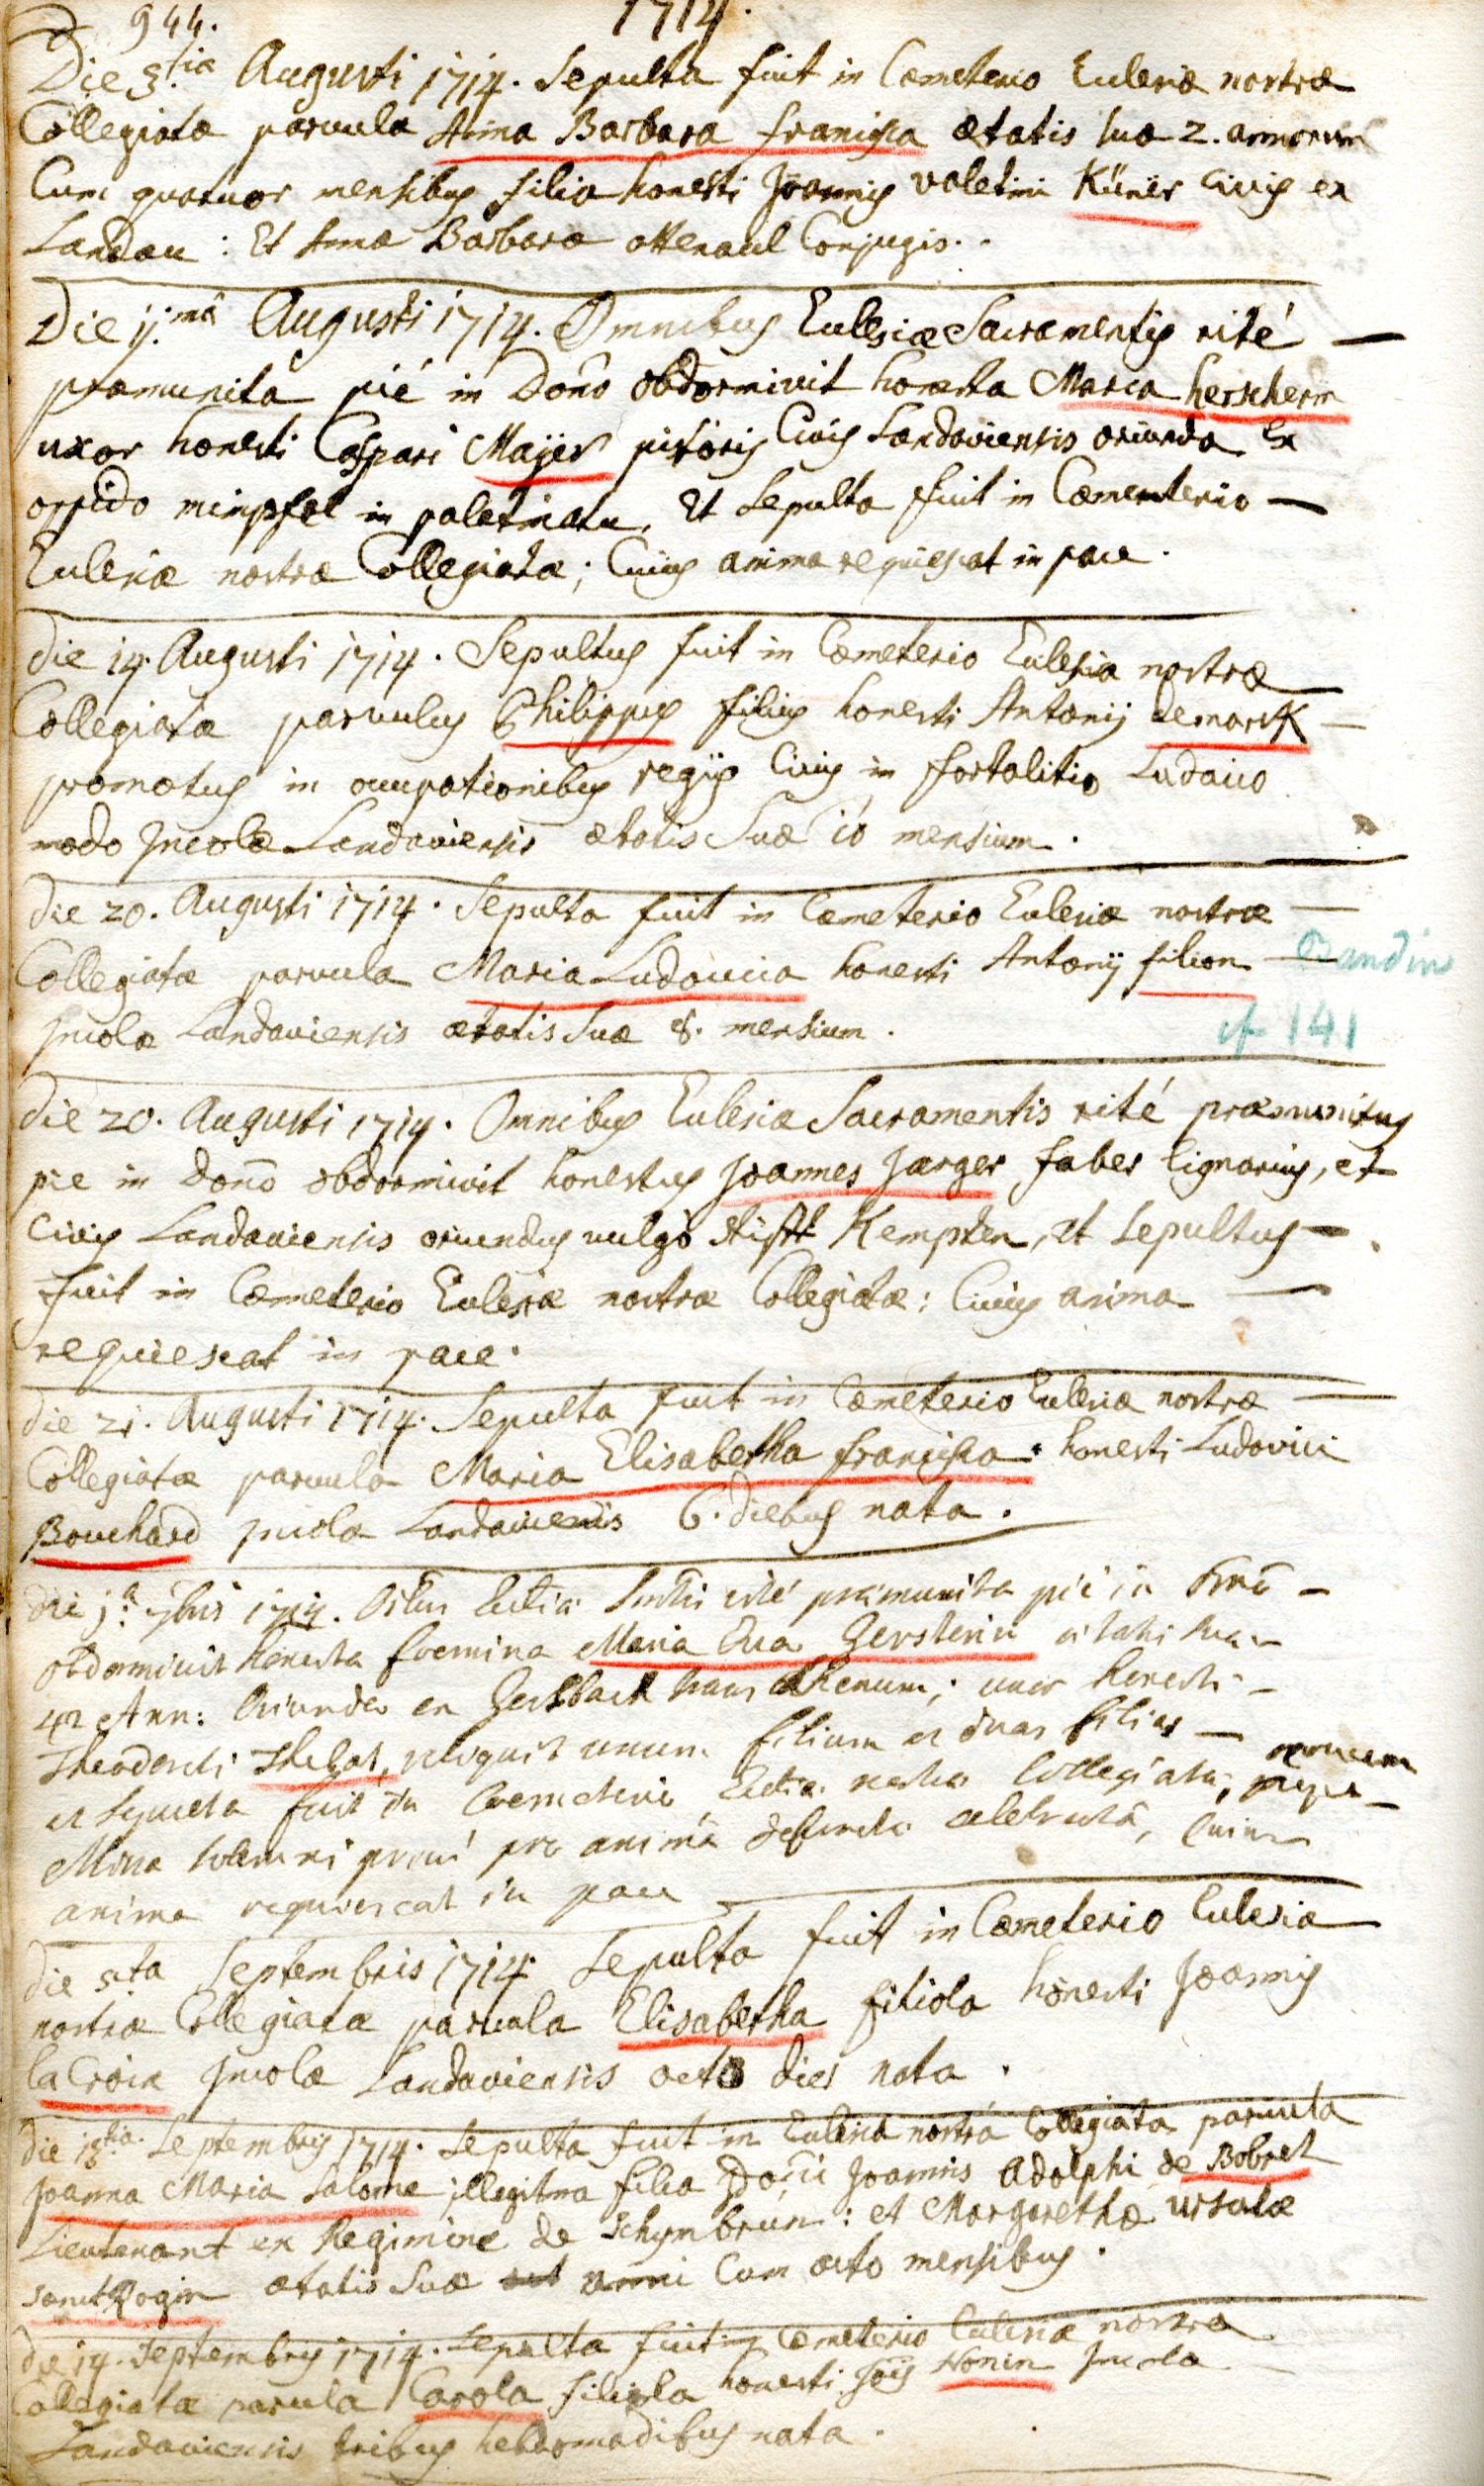 944. 1714.
Die 3.tia Augusti 1714. Sepulta fuit in Cœmeterio Ecclesiæ nostræ
Collegiatæ parvula Anna Barbara francisca ætatis suæ 2. annorum
Cum quatuor mensibus filia honesti Joannis valetini Künir Civis ex
Landau : Et Annæ Barbaræ Conjugis.
Die 11.mâ Augusti 1714. Omnibus Ecclesiæ Sacramentis rité
præmunita pié in Dono obdormivit honesta Maria herscherin
uxor honesti Caspari Majer pistoris Civis Landaviensis oriunda Ex
oppido mimpfel in paletinatu, Et Sepulta fuit in Cœmenterio
Ecclesiæ nostræ Collegiatæ; Cuius anima requiescat in pace.
die 14. Augusti 1714. Sepultus fuit in Cœmeterio Ecclesiæ nostræ
Collegiatæ parvulus Philippus filius honesti Antonij demarck
promotus in occupationibus regijs Civis in fortalitio Ludaico
modo Jncolæ Landaviensis ætatis Suæ 10 mensium.
die 20. Augusti 1714. Sepulta fuit in Cœmeterio Ecclesiæ nostræ
Collegiatæ parvula Maria Ludovica honesti Antonij filion Bandin
Jncolæ Landaviensis ætatis Suæ 8. mensium. cf 141
die 20. Augusti 1714. Omnibus Ecclesiæ Sacramentis rité præmunitus
pie in Dono obdormivit honestus Joannes Jarger faber lignarius, et
Civis Landaviensis oriundus vulgò stifft Kempten, et Sepultus
fuit in Cœmeterio Ecclesiæ nostræ Collegiatæ : Cuius anima
requiescat in pace.
die 21. Augusti 1714. Sepulta fuit in Cœmeterio Ecclesiæ nostræ
Collegiatæ parvula Maria Elisabetha francisca honesti Ludovici
Bouchard Jncolæ Landaviensis 6. diebus nata.
die 1.a 7bris 1714. rité præmunita pié in Dnô
obdormivit honesta fœmina Maria Eva Gersterin ætatis suæ
42 Ann: Oriunda ex Gersbach trans Rhenum; uxor honesti
Theodorici Thelot, reliquit unum filium et duas filias
et sepulta fuit in Cœmeterio Ecclia nostra Collegiata,
Missa solemni prius pro anima defuncta celebrata, Cuius
anima requiescat in pace
die 5ta Septembris 1714. Sepulta fuit in Cœmeterio Ecclesiæ
nostræ Collegiatæ parvula Elisabetha filiola honesti Joannis
la Croix Jncolæ Landaviensis octo dies nata.
die 13.tia Septembris 1714. Sepulta fuit in Ecclesia nostra Collegiata parvula
Joanna Maria Salome illegitma filia Joannis Adolphi de Bobret
Lieutenant ex Regimine de Schymbrun : et Margarethæ ursulæ
ætatis Suæ anni Cum octo mensibus.
die 14. Septembris 1714. Sepulta fuit in Cœmeterio Ecclesiæ nostræ
Collegiatæ parvula Carola filiola honesti Jois Nonin Jncola
Landaviensis tribus hebdomadibus nata.